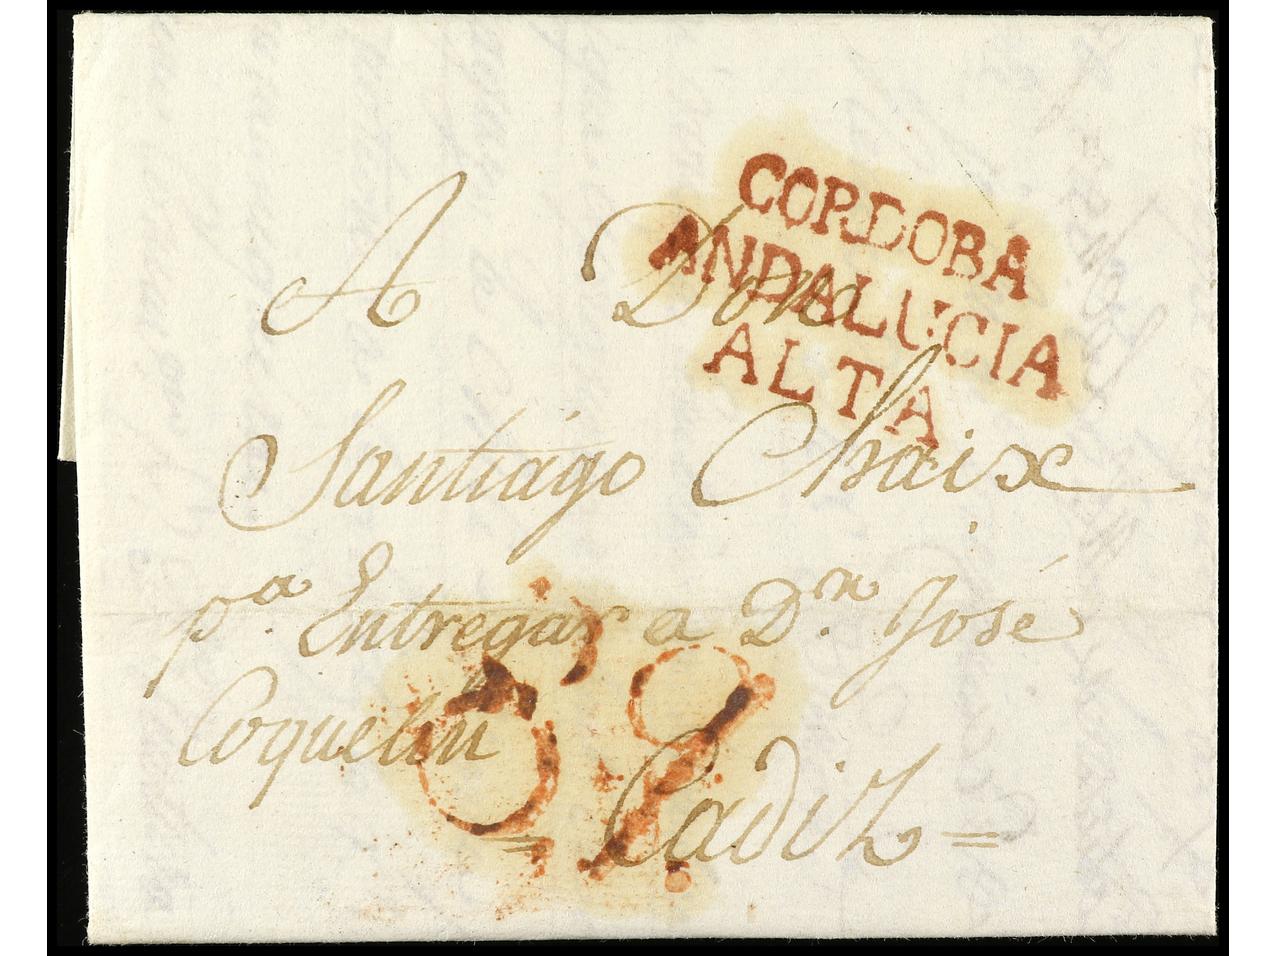 CORDOBA
ANDALUCIA
ALTA
A Don
Santiágo Chaix
pa. Entregar a Dn. José
Coquelin
= Cadiz =